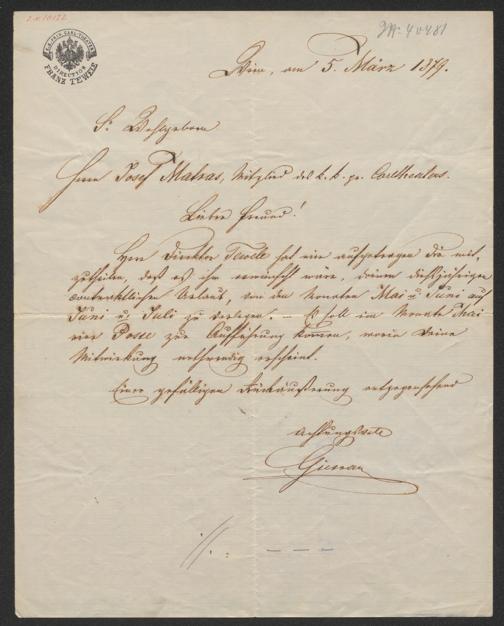 K.K. PRIV. CARL-THEATER
DIRECTION
FRANZ TEWELE
Wien, am 5. März 1879.
Sr. Wohlgeborn
Herrn Josef Matras, Mitglied des k. k. pr. Carltheaters.
Lieber Freund!
Herr Direktor Tewele hat mir aufgetragen Dir mit,
zutheilen, daß es ihm erwünscht wäre, Deinen dießjährigen
contraktlichen Urlaub, von den Monaten Mai u. Juni auf
Juni u. Juli zu verlegen. – Es soll im Monate Mai
eine Posse zur Aufführung kommen, worin Deine
Mitwirkung nothwendig erscheint.
Einer gefälligen Rückäußerung entgegensehend
Achtungsvoll